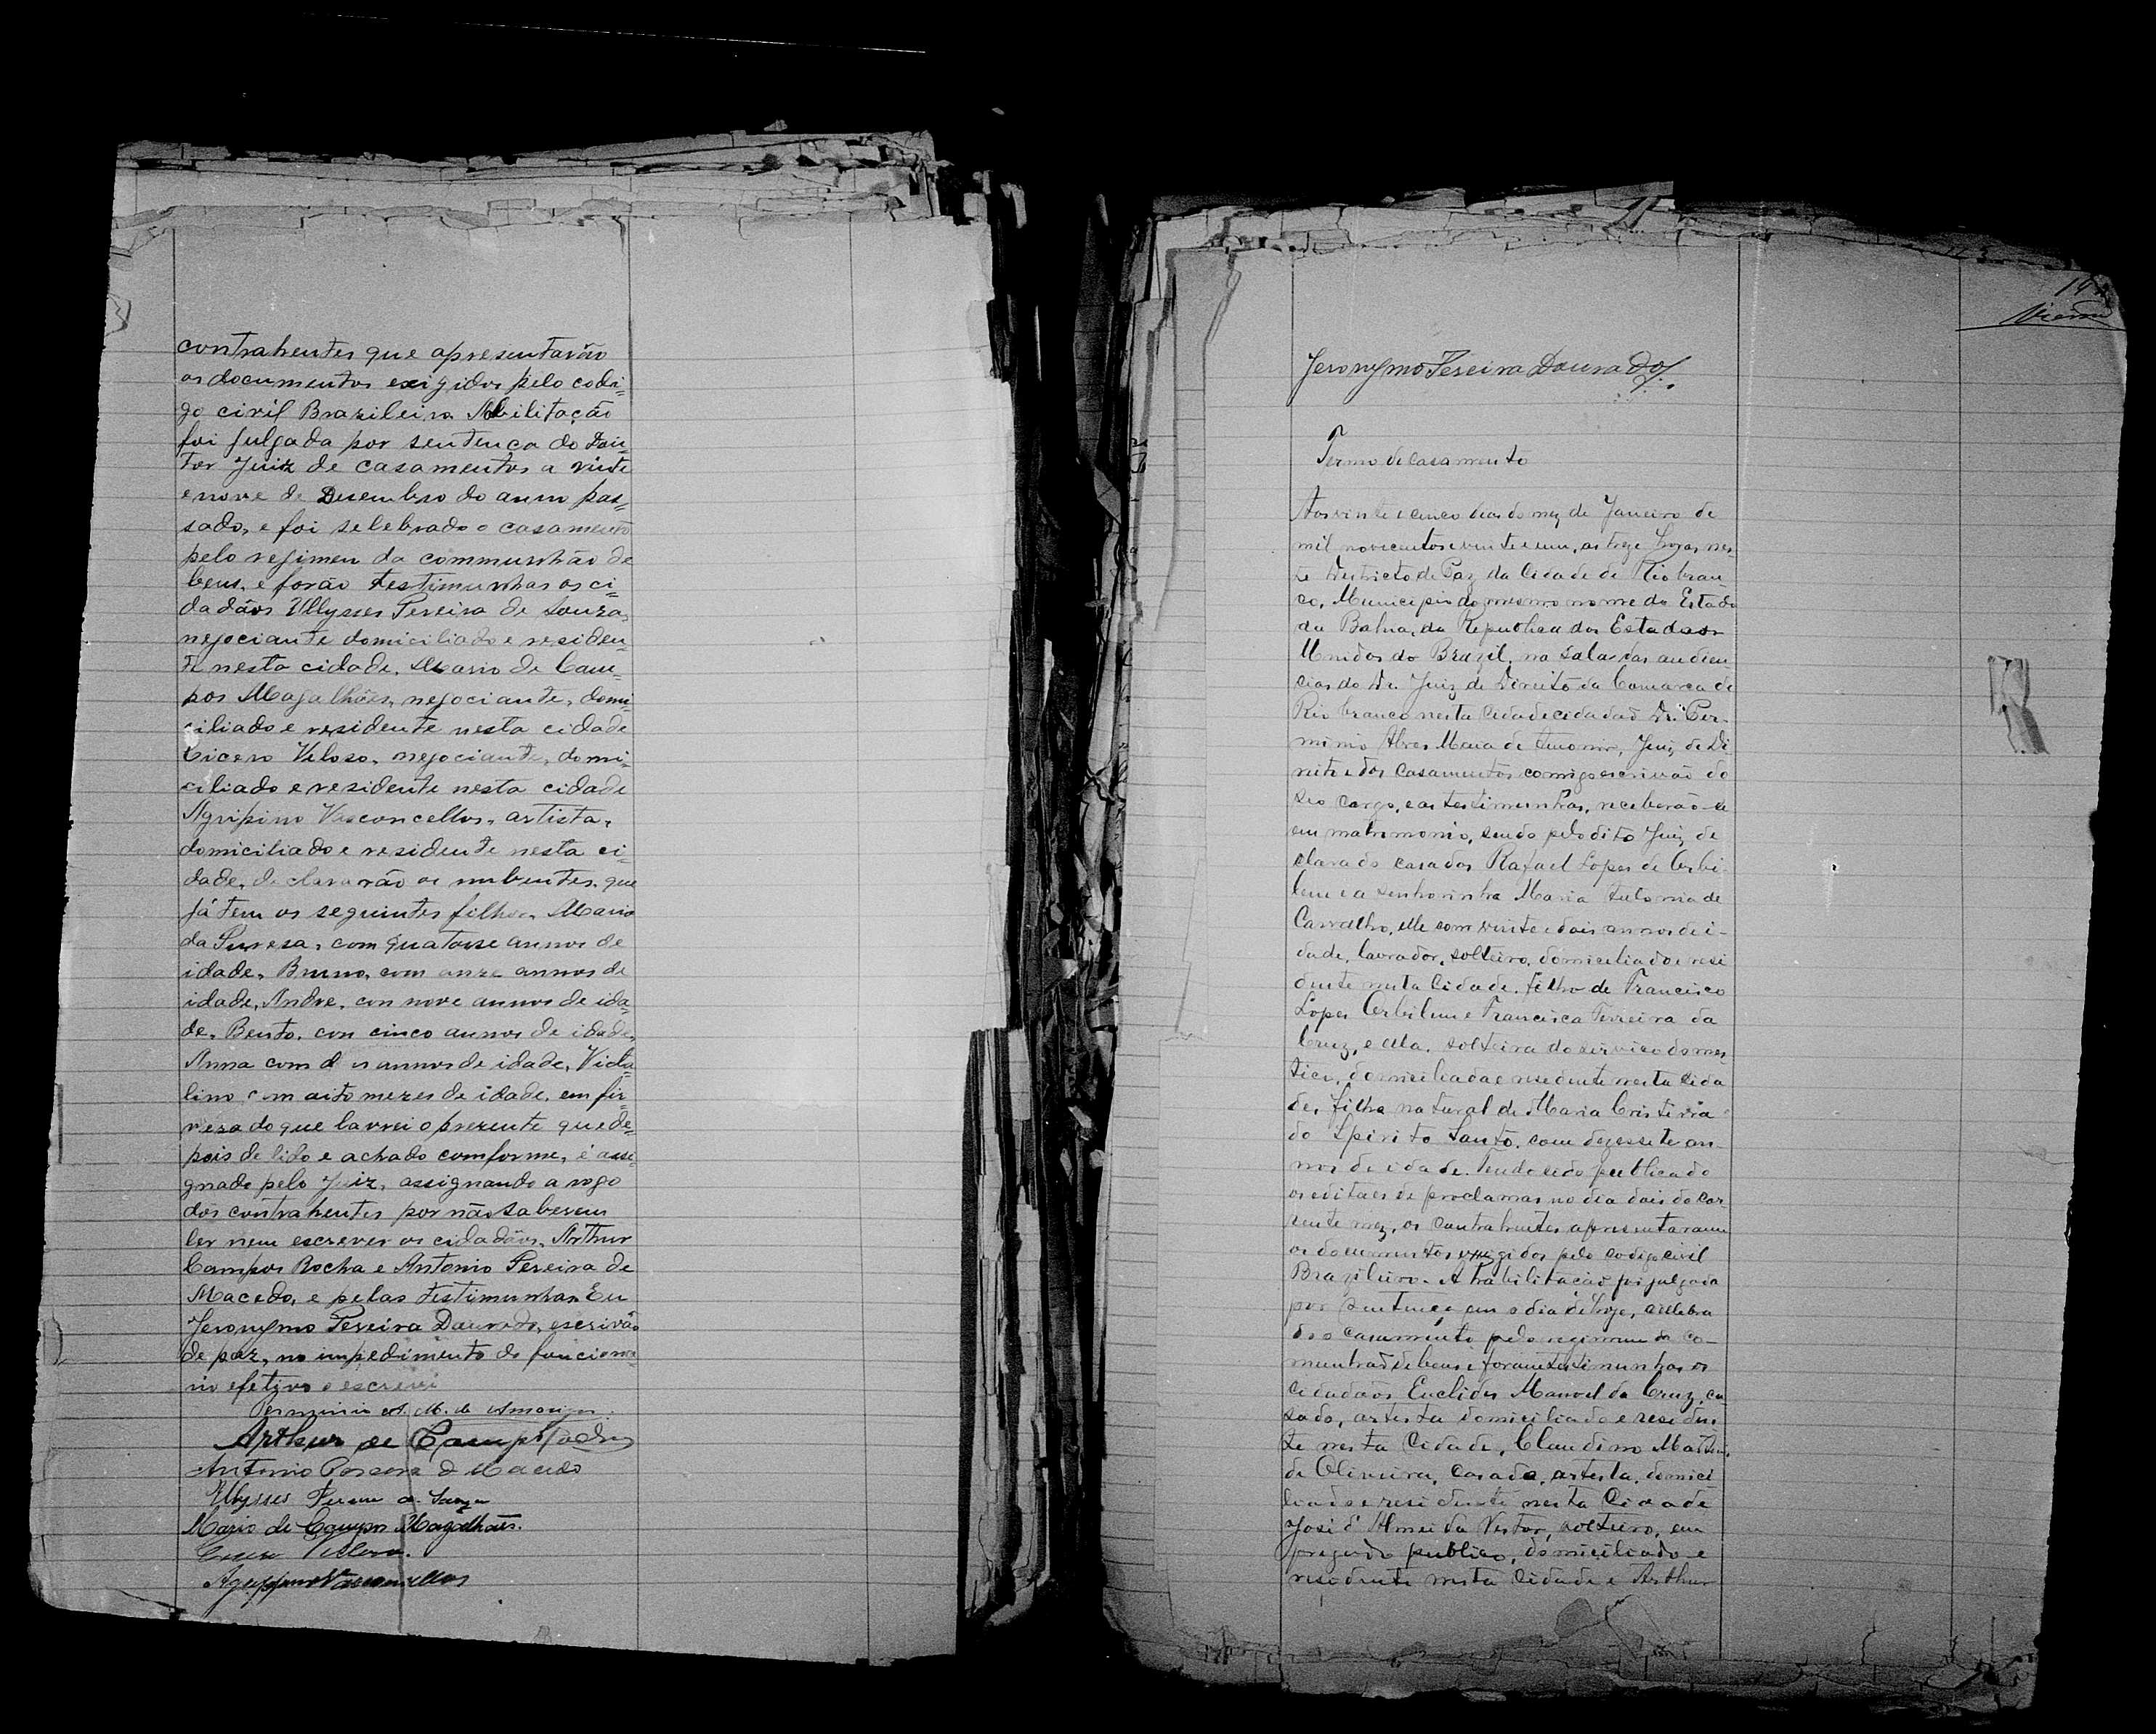 contrahentes que apresentarão
os documentos exigidos pelo codi=
go civil Brazileiro. Abilitação
foi julgada por sentença do Dou=
tor Juiz de casamentos a vinte
e nove de Desembro do anno pas=
sado, e foi selebrado o casamento
pelo regimen da communhão de
bens, e forão testimunhas os ci=
dadãos Ullysses Pereira de Souza,
negociante domiciliado e residen=
te nesta cidade, Mario de Cam=
pos Magalhães, negociante, domi=
ciliado e residente nesta cidade
Cicero Veloso, negociante, domi=
ciliado e residente nesta cidade
Agripino Vasconcellos, artista,
domiciliado e residente nesta ci=
dade, declararão os nubentes, que
já tem os seguintes filhos, Maria
da Puresa, com quatorse annos de
idade, Bruno, com onze annos de
idade, Andre, con nove annos de ida=
de, Bento, con cinco annos de idade,
Anna com annos de idade,
lino com oito mezes de idade, em fir=
meza do que lavrei o prezente que de=
pois de lido e achado comforme, é assi=
gnado pelo Juiz, assignando a rogo
dos contrahentes por não saberem
ler nem escrever os cidadãos, Arthur
Campos Rocha e Antonio Pereira de
Macedo, e pelas testimunhas. Eu
Jeronymo Pereira Dourado, escrivão
de paz, no impedimento do funciona=
rio efetivo o escrevi
Perminio A. M. de Amorim.
Arthur de Campos Rocha
Antonio Pereira de Macedo
Ullysses Pereira de Souza
Mario de Campos Magalhães.
Cicero Velloso.
Agrippino Vasconcellos
Jeronymo Pereira Dourado
Termo de casamento
Aos vinte e cinco dias do mez de Janeiro de
mil novecentos e vinte e um, as treze horas nes-
te Destricto de Paz da Cidade de Rio bran-
co, Municipio do mesmo nome do Estado
da Bahia, da Republica dos Estados
Unidos do Brazil, na sala das audien
cias do Dr. Juiz de Direito da Comarca de
Rio branco nesta Cidade cidadão Dr. Per-
minio Alves Maia de Amorim, Juiz de Di
reito e dos casamentos comigo escrivão do
seo cargo, e as testimunhas, receberão-se
em matrimonio, sendo pelo dito Juiz de
clarado casados Rafael Lopes de
e a senhorinha Maria de
Carvalho, elle com vinte e dois annos de i-
dade, lavrador, solteiro, domiciliado e resi
dente nesta Cidade, filho de Francisco
Lopes e Francisca Ferreira da
Cruz, e ella, solteira do serviço domes
tico, domiciliada e residente nesta Cida
de, filha natural de Maria Cristina
do Spirito Santo, com dezessete an-
nos de idade. Tendo sido publicado
os editaes de proclamas no dia dois do cor
rente mez, os contrahentes apresentaram
os documentos exigidos pelo codigo civil
Brazileiro. A habilitação foi julgada
por sentença em o dia de hoje, e celebra
do o casamento pelo regimem da co-
munhão de bens e foram testimunhas os
cidadãos Euclides Manoel da Cruz, ca
sado, artista domiciliado e residen
te nesta Cidade, Claudino
de Oliveira, casado, artista, domici
liado e residente nesta Cidade
José d'Almeida Nestor, solteiro, em
pregado publico, domiciliado e
residente nesta Cidade e Arthur